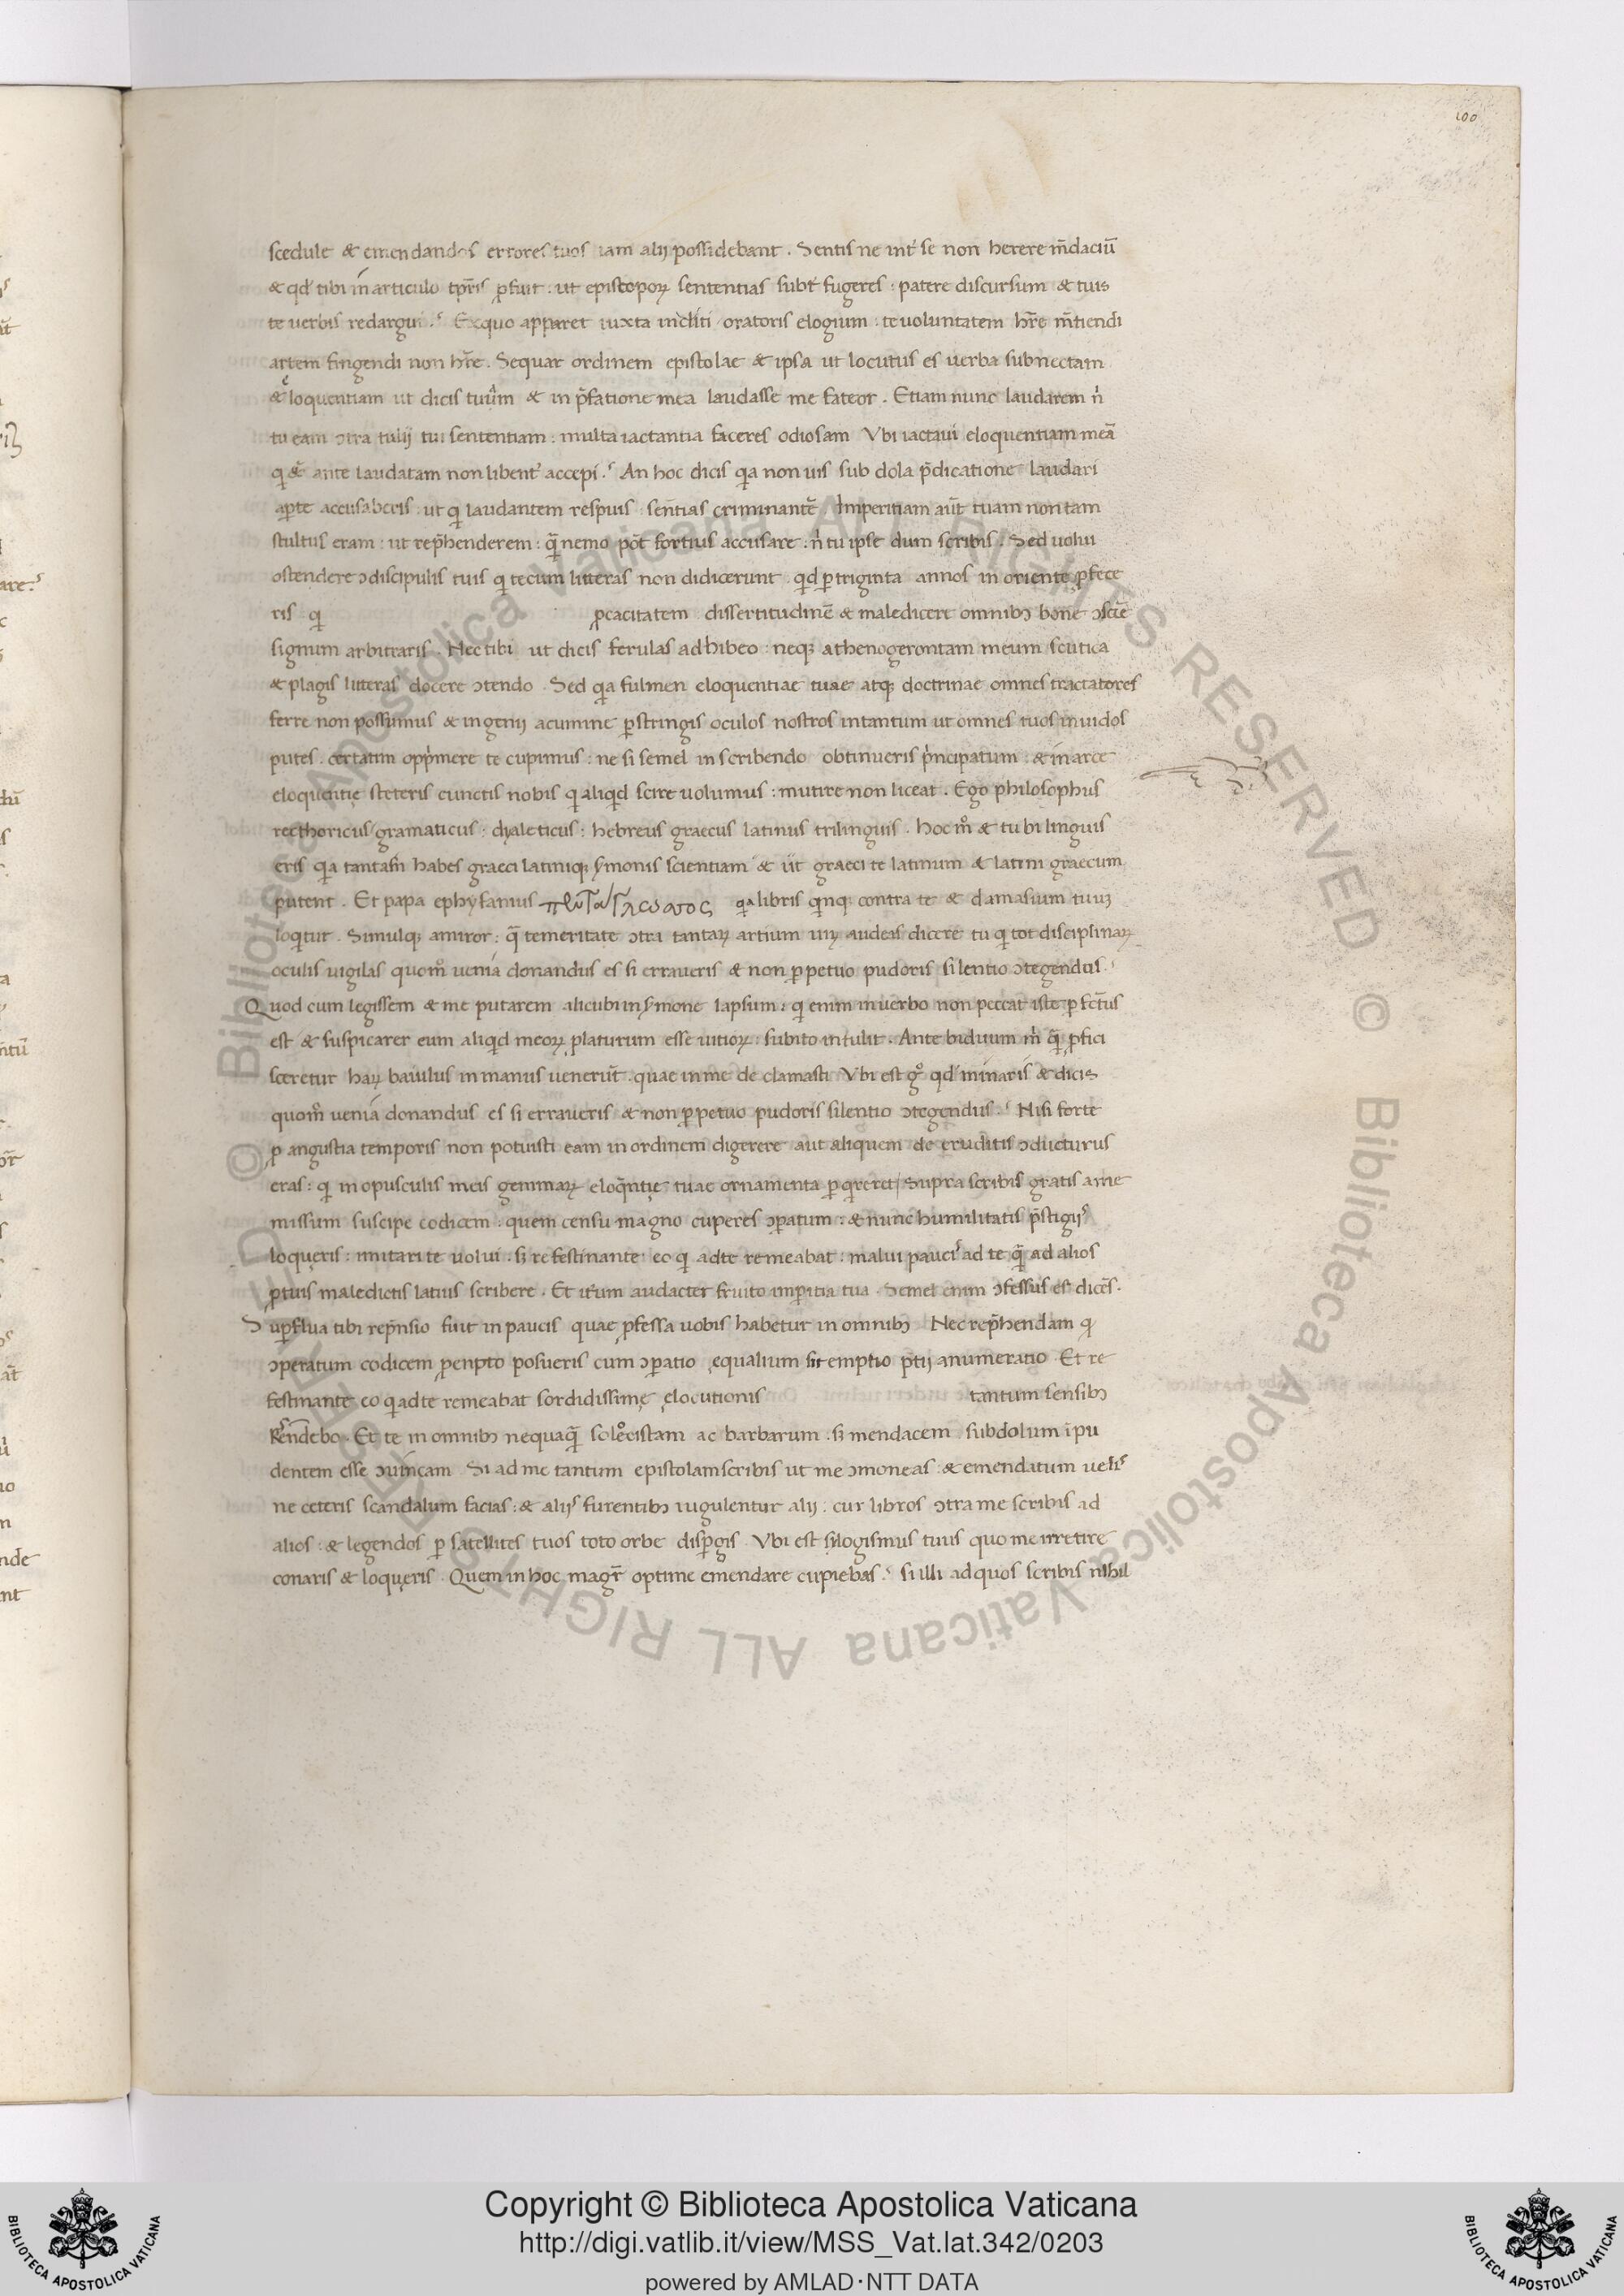 100
scedule & emendandos errores tuos iam alij possidebant . Sentis ne int̉ se non herere m̄daciū
& qd̓ tibi in articulo tp̄ris ꝓfuit : ut episcoporꝝ sententias subt̓ fugeres : patere discursum & tuis
te uerbis redargui .ˢ Ex quo apparet iuxta incliti oratoris elogium : te uoluntatem hr̄e m̄tiendi
artem fingendi non hr̄e . Sequar ordinem epistolae & ipsa ut locutus es uerba subnectam
& eloquentiam ut dicis tuam & in p̄fatione mea laudasse me fateor . Etiam nunc laudarem n̓
tu eam ↄtra tulij tui sententiam : multa iactantia faceres odiosam Vbi iactaui eloquentiam meā
qi & ante laudatam non libent̓ accepi .ˢ An hoc dicis qa non uis sub dola p̄dicatione laudari
aꝑte accusaberis : ut qi laudantem respuis : sen̄tias criminantē Imperitiam aūt tuam non tam
stultus eram : ut rep̄henderem : qā nemo pōt fortius accusare : n̓ tu ipse dum scribis . Sed uolui
ostendere ↄdiscipulis tuis qi tecum litteras non didicerunt qd ꝑ triginta annos in oriente ꝓfece
ris . qi ꝓcacitatem dissertitudinē & maledicere omnibꝫ bone ↄsciē
signum arbitraris . Nec tibi ut dicis ferulas adhibeo : neqꝫ athenogerontam meum scutica
& plagis litteras docere ↄtendo . Sed qa fulmen eloquentiae tuae atqꝫ doctrinae omnes tractatores
ferre non possumus & ingenij acumine ꝑstringis oculos nostros intantum ut omnes tuos inuidos
putes . certatim opp̓mere te cupimus : ne si semel in scribendo obtinueris p̓ncipatum : & in arce
eloquentię steteris cunctis nobis qi aliqid scire uolumus : mutire non liceat . Ego philosophus
recthoricus gramaticus : dyaleticus : hebreus graecus latinus trilinguis . hoc m̊ & tu bilinguis
eris qa tantam habes graeci latiniqꝫ ẜmonis scientiam & ut graeci te latinum & latini graecum
putent . Et papa ephyfanius qa libris qinqꝫ contra te & damasium tuum
loqitur . Simulqꝫ amiror : qā temeritate ↄtra tantarꝝ artium uirꝝ audeas dicere tu qi tot disciplinarꝝ
oculis uigilas quom̊ uenia donandus es si erraueris & non ꝑpetuo pudoris silentio ↄtegendus .ˢ
Quod cum legissem & me putarem alicubi in ẜmone lapsum : qi enim in uerbo non peccat iste ꝑfectus
est & suspicarer eum aliqid meorꝝ ꝓlaturum esse uitiorꝝ : subito intulit . Ante biduum m̓ qā ꝓfici
sceretur harꝝ baiulus in manus uenerūt . quae in me de clamasti Vbi est g̊ qd̓ minaris & dicis
quom̊ uenia donandus es si erraueris & non ꝑpetuo pudoris silentio ↄtegendus .ˢ Nisi forte
ꝓ angustia temporis non potuisti eam in ordinem digerere aut aliquem de eruditis ↄducturus
eras : qi in opusculis meis gemmarꝝ eloq̄ntię tuae ornamenta ꝑqireret Supra scribis gratis a me
missum suscipe codicem : quem censu magno cuperes ↄꝑatum : & nunc humilitatis p̄stigijˢ
loqueris : imitari te uolui . sꝫ refestinante eo qi ad te remeabat : malui pauciˢ ad te qā ad alios
ꝓ tuis maledictis latius scribere . Et itum audacter fruito imꝑitia tua . Semel enim ↄfessus es dicēs .
Suꝑflua tibi rep̄nsio fuit in paucis quae ꝓfessa uobis habetur in omnibꝫ Nec rep̄hendam qi
ↄperatum codicem ꝓ empto posueris cum ↄꝑatio ęqualium sit emptio p̄tij anumeratio . Et re
festinante eo qi ad te remeabat sordidissimę ęlocutionis tantum sensibꝫ
Rn̄debo . Et te in omnibꝫ nequaqā soloecistam ac barbarum . sꝫ mendacem subdolum īpu
dentem esse ↄuincam Si ad me tantum epistolam scribis ut me ↄmoneas & emendatum ueliˢ
ne ceteris scandalum facias : & alijˢ furentibꝫ iugulentur alij : cur libros ↄtra me scribis ad
alios : & legendos ꝑ satellites tuos toto orbe disꝑgis . Vbi est silogismus tuus quo me irretire
conaris & loquęris . Quem in hoc magr̄ optime emendare cupiebas .ˢ si illi ad quos scribis nihil
© Biblioteca Apostolica Vaticana ALL RIGHTS RESERVED © Biblioteca Apostolica Vaticana ALL RIGHTS RESERVED
Copyright © Biblioteca Apostolica Vaticana
http://digi.vatlib.it/view/MSS_Vat.lat.342/0203
powered by AMLAD·NTT DATA
BIBLIOTECA APOSTOLICA VATICANA
BIBLIOTECA APOSTOLICA VATICANA